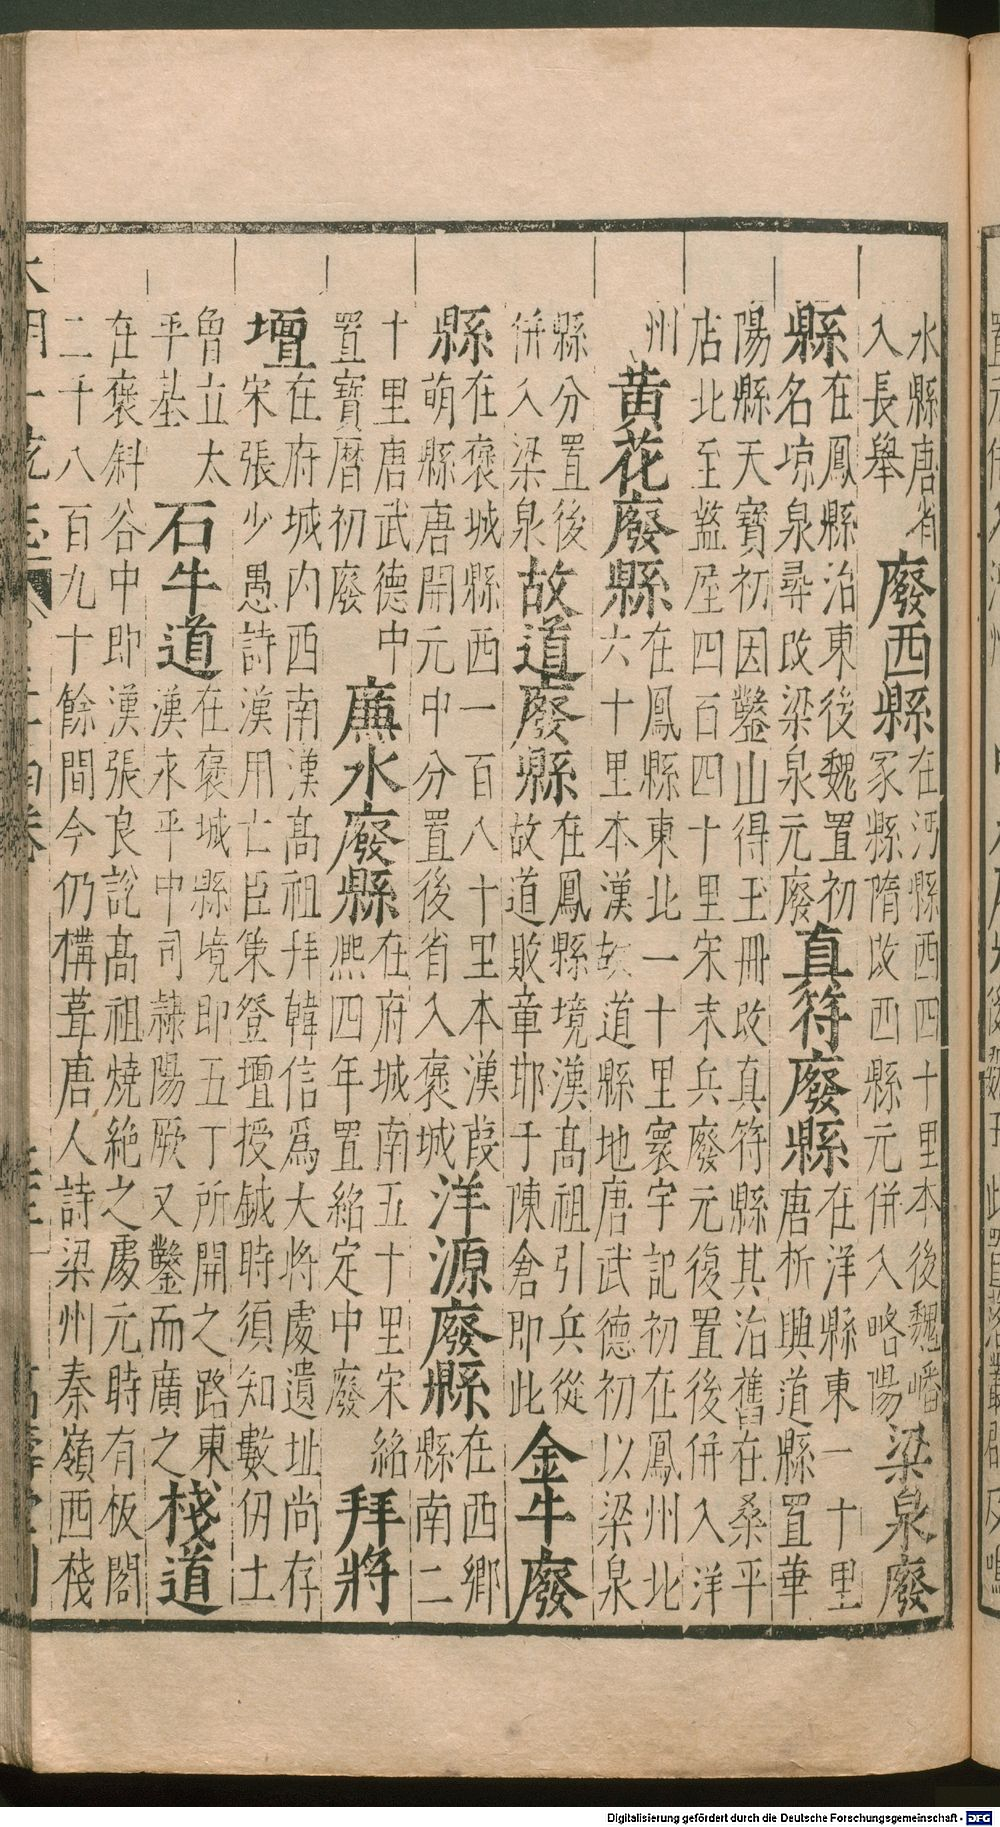 水縣唐省
入長舉
廢西縣
在沔縣西四十里本後魏嶓
冢縣隋改西縣元併入略陽
梁泉廢
縣
在鳳縣治東後魏置初
名凉泉尋改梁泉元廢
真符廢縣
在洋縣東一十里
唐析興道縣置華
陽縣天寶初因鑿山得玉冊改真符縣其治舊在桑平
店北至盩厔四百四十里宋末兵廢元復置後併入洋
州
黄花廢縣
在鳳縣東北一十里寰宇記初在鳳州北
六十里本漢故道縣地唐武德初以梁泉
縣分置後
併入梁泉
故道廢縣
在鳳縣境漢髙祖引兵從
故道敗章邯于陳倉即此
金牛廢
縣
在褒城縣西一百八十里本漢葭
萌縣唐開元中分置後省入褒城
洋源廢縣
在西鄉
縣南二
十里唐武德中
置寶曆初廢
廉水廢縣
在府城南五十里宋紹
熈四年置紹定中廢
拜將
壇
在府城内西南漢髙祖拜韓信爲大將處遺址尚存
宋張少愚詩漢用亡臣策登壇授鉞時須知數仞土
曾立太
平基
石牛道
在褒城縣境即五丁所開之路東
漢永平中司隷陽厥又鑿而廣之
棧道
在褒斜谷中即漢張良說髙祖燒絶之處元時有板閣
二千八百九十餘間今仍構葺唐人詩梁州秦嶺西棧
Digitalisierung gefördert durch die Deutsche Forschungsgemeinschaft - DFG